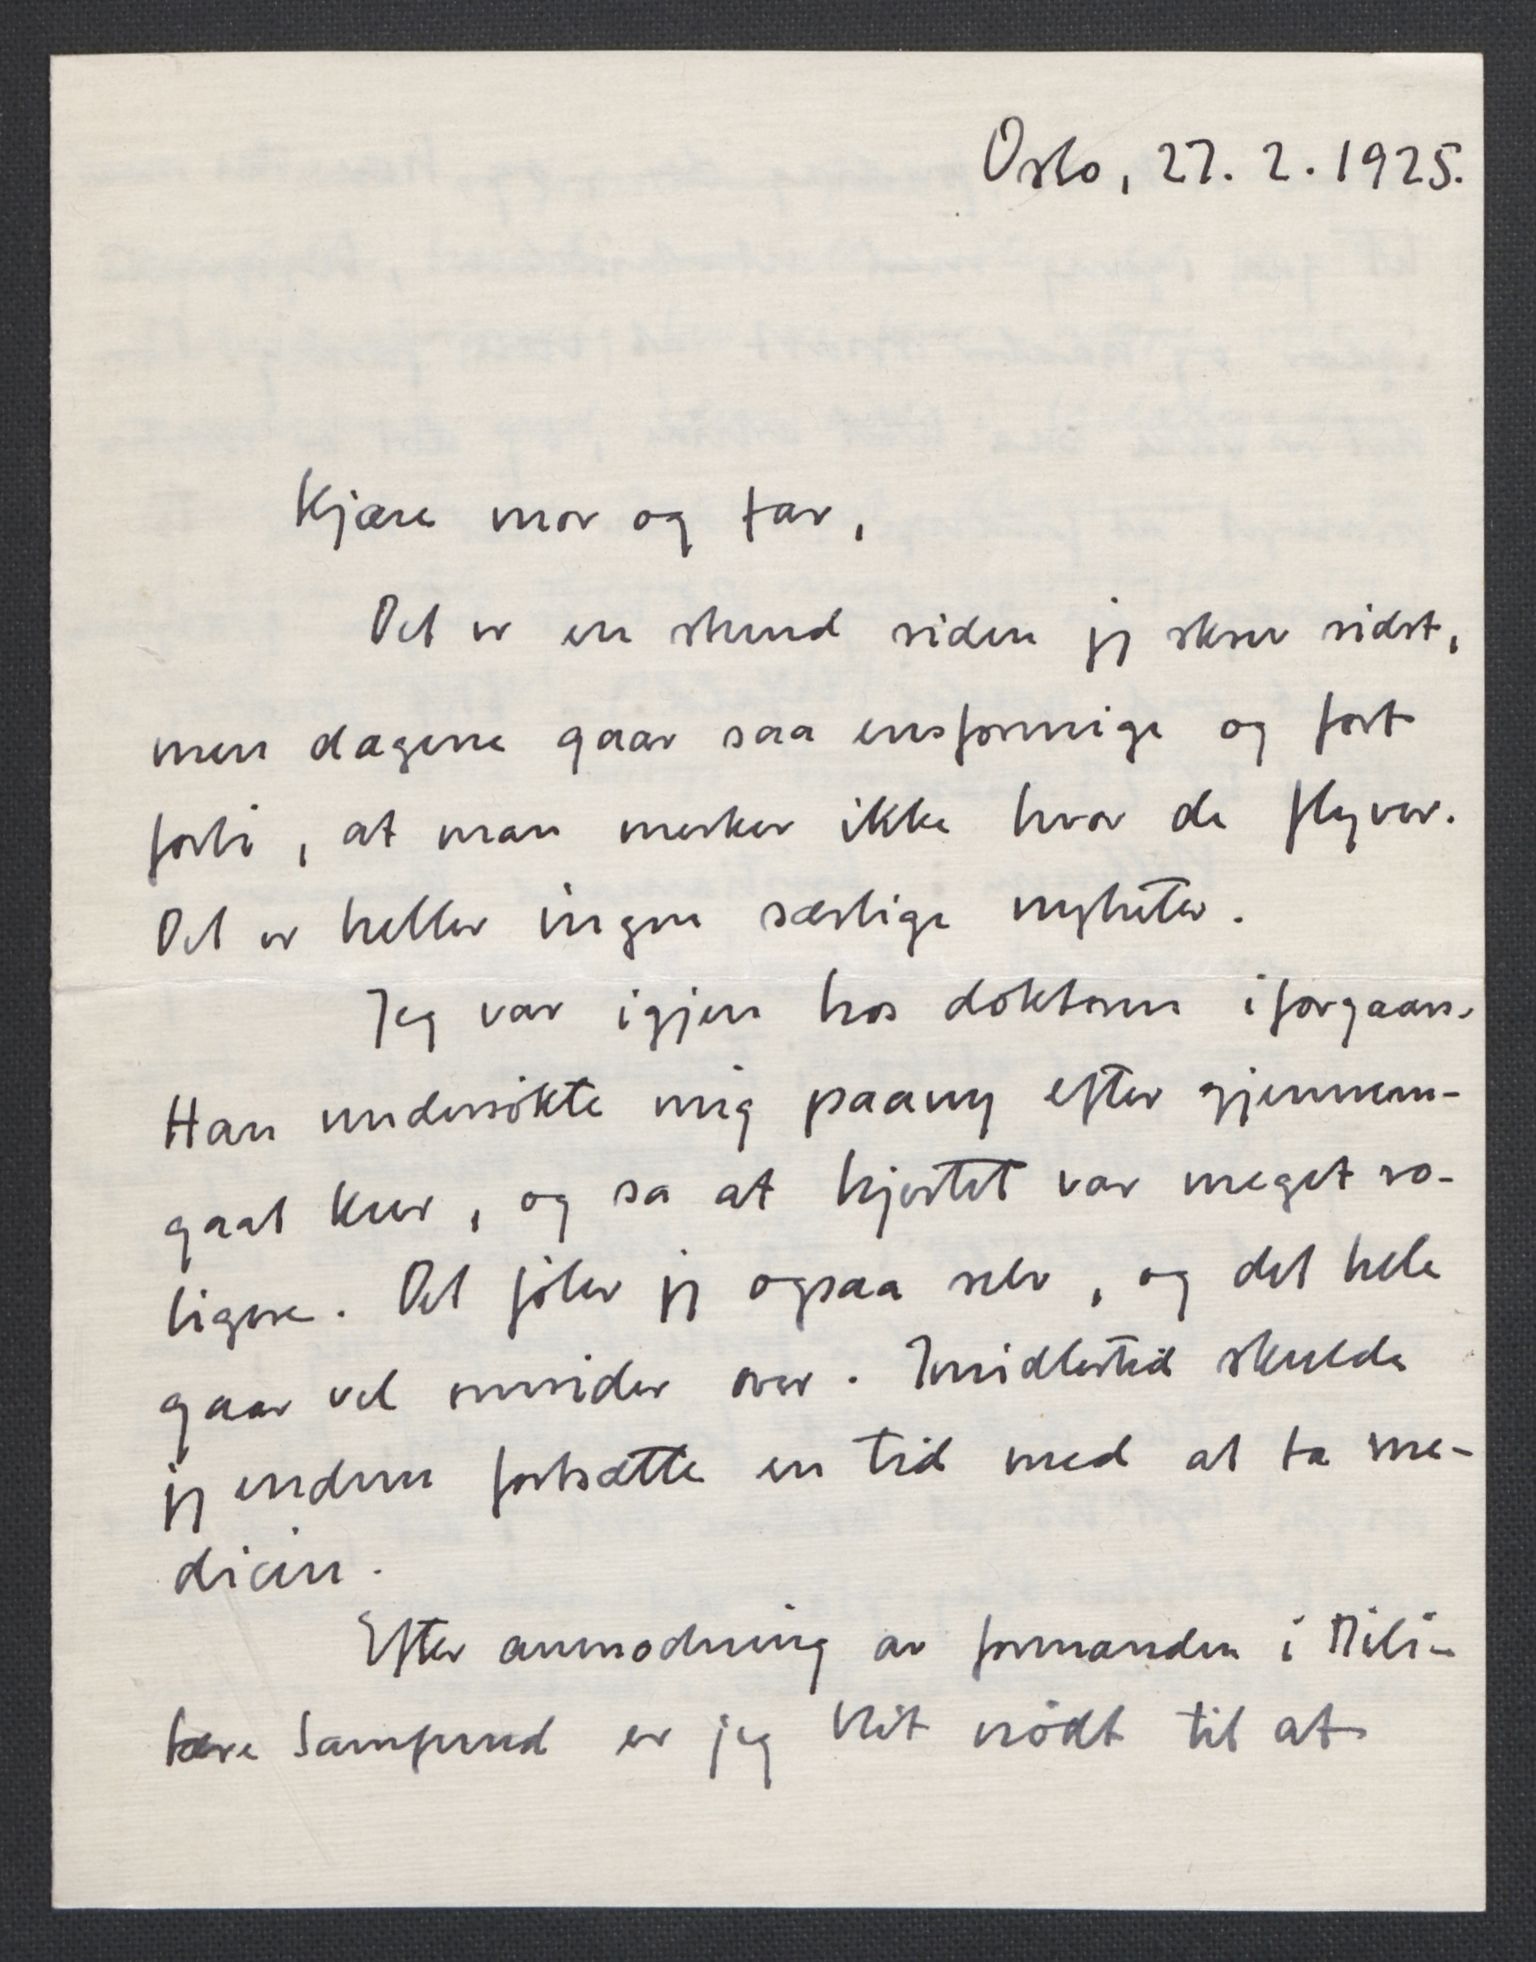 Oslo, 27. 2. 1925.
Kjære mor og far,
Det er en stund siden jeg skrev sidst,
men dagene gaar saa ensformige og fort
forbi, at man merker ikke hvor de flyver.
Det er heller ingen særlige nyheter.
Jeg var igjen hos doktoren iforgaars.
Han undersökte mig paany efter gjennem-
gaat kur, og sa at hjertet var meget ro-
ligere. Det föler jeg ogsaa selv, og det hele
gaar vel omsider over. Imidlertid skulde
jeg endnu fortsætte en tid med at ta me-
dicin.
Efter anmodning av formanden i Mili-
tære Samfund er jeg blit nödt til at